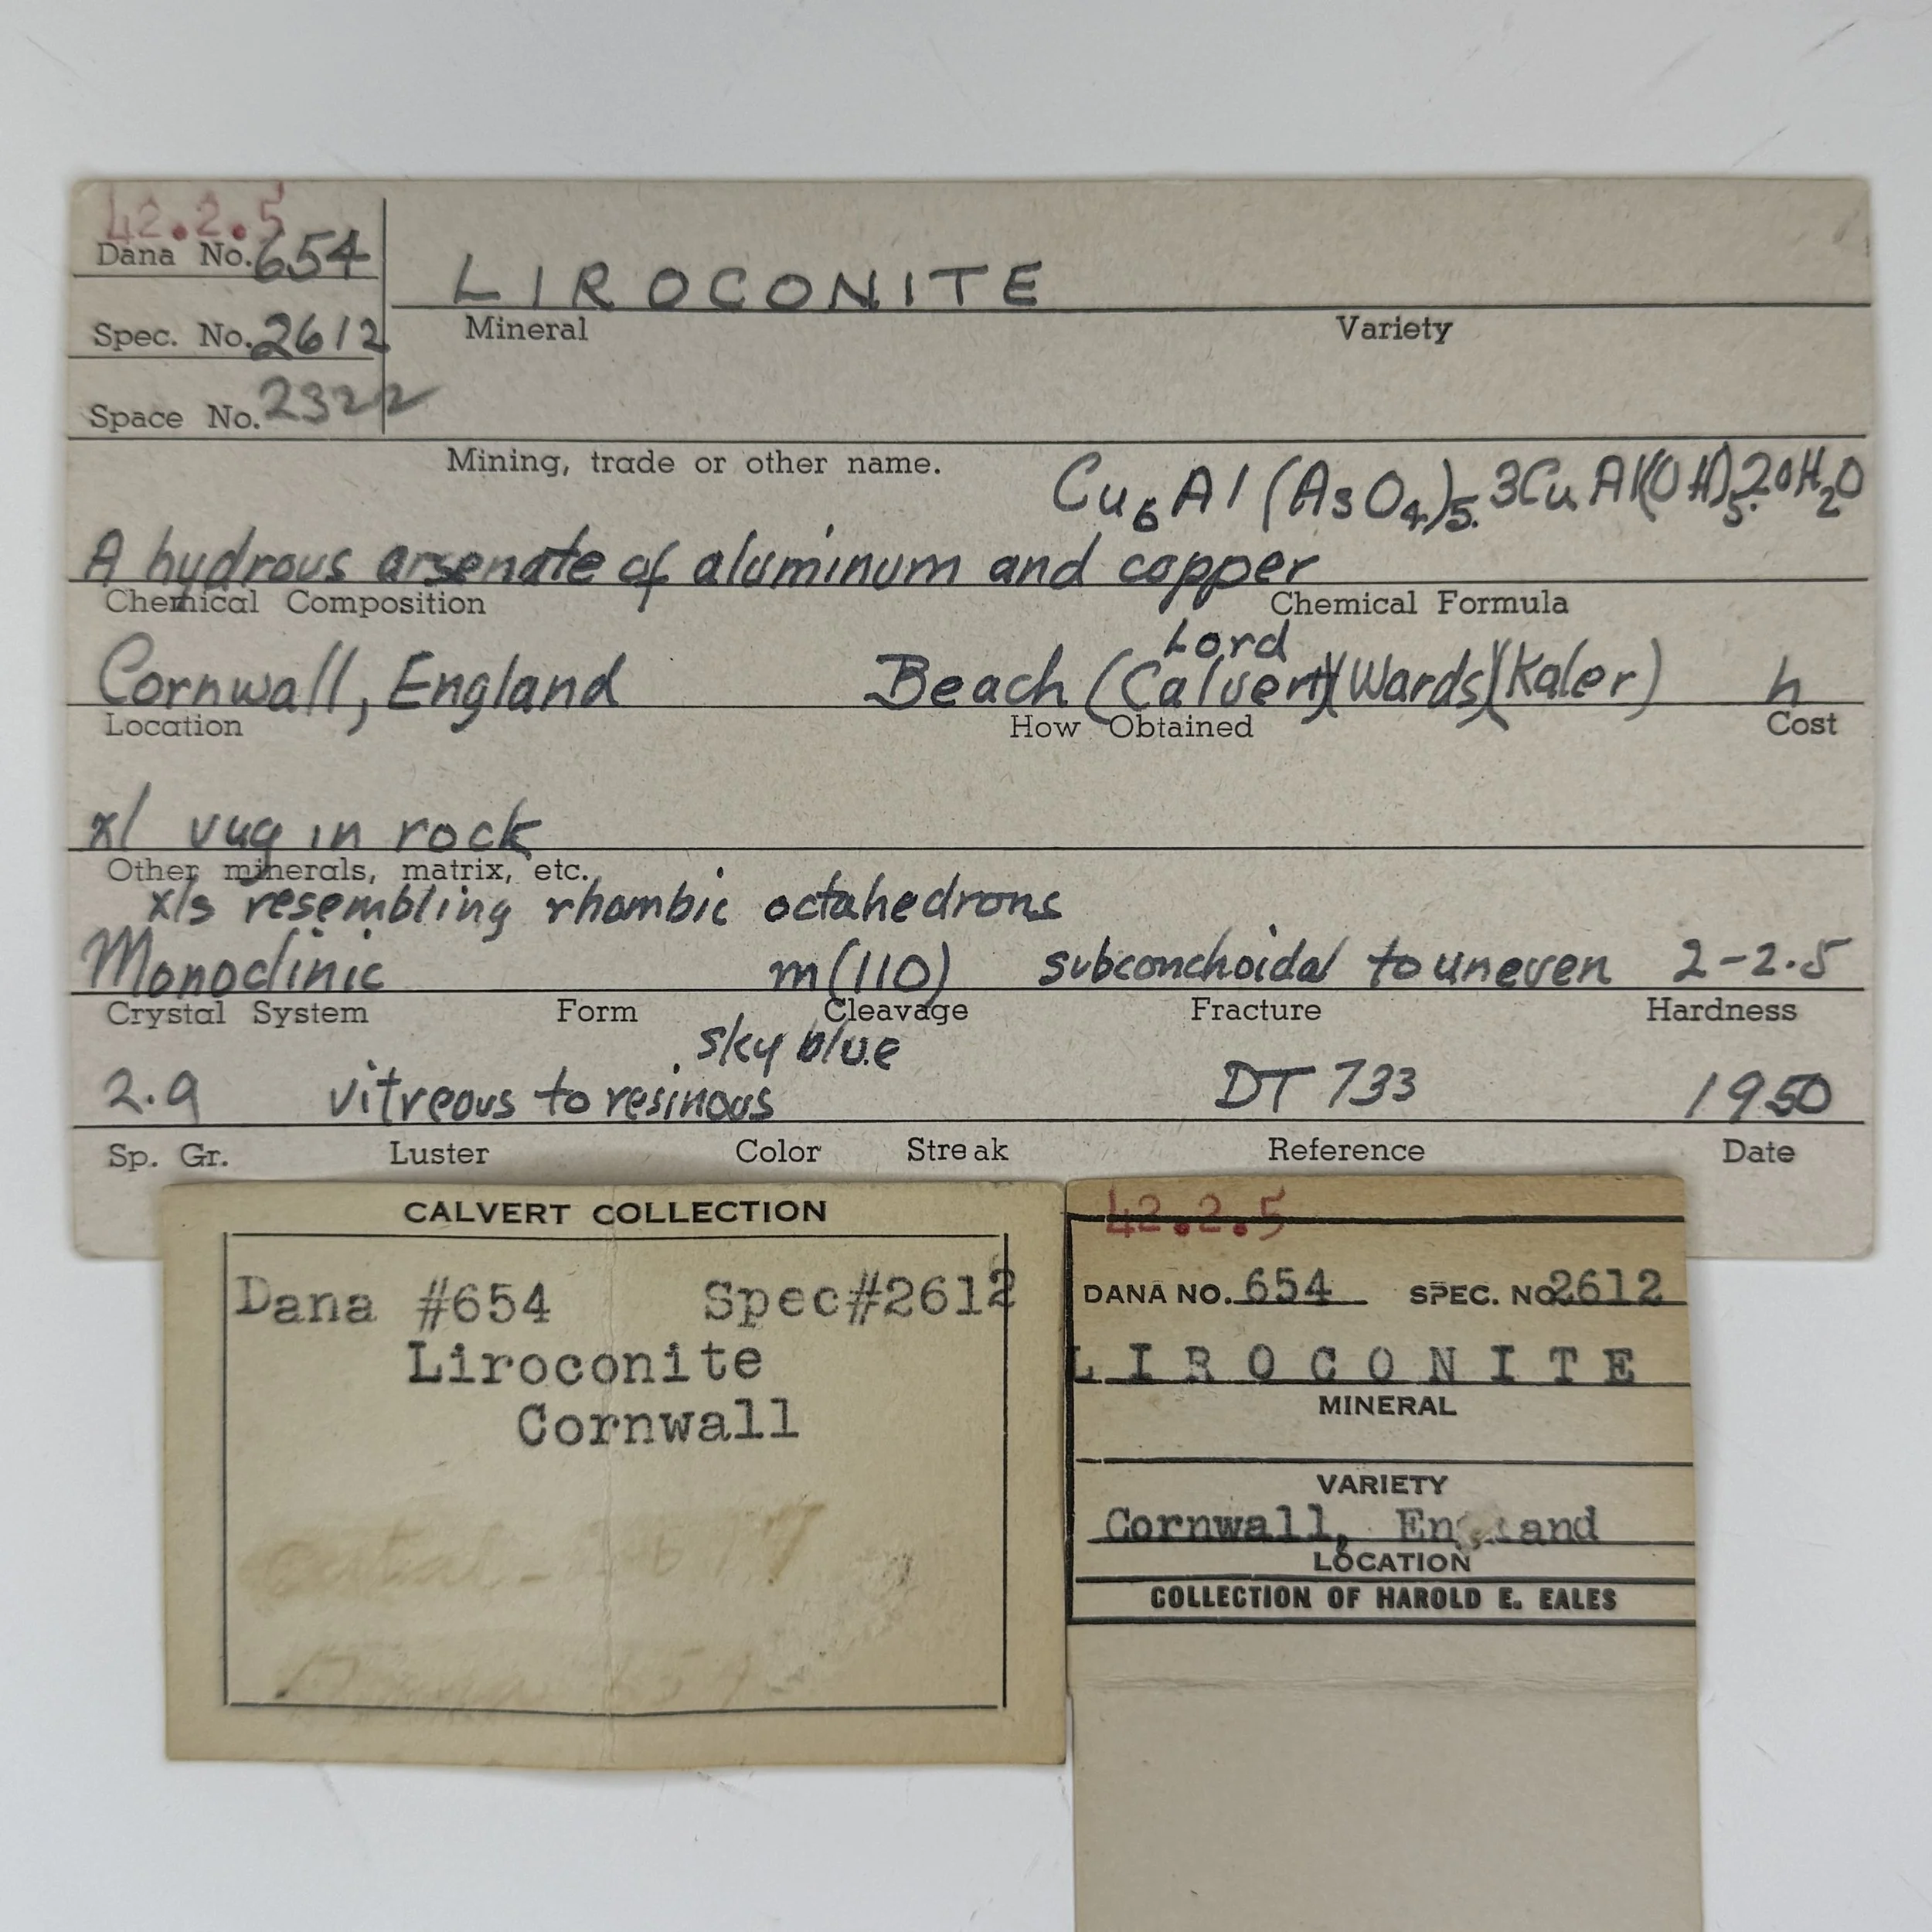 42.2.5
Dana No. 654
LIROCONITE
Mineral Variety
Spec. No. 2612
Space No. 2322
Mining, trade or other name.
Cu6Al(AsO4)5.3CuAl(OH)5.20H2O
A hydrous arsenate of aluminum and copper
Chemical Composition Chemical Formula
Lord
Cornwall, England Beach (Calvert)(Wards)(Kaler) h
Location How Obtained Cost
xl vug in rock
Other minerals, matrix, etc.
xls resembling rhombic octahedrons
Monoclinic m(110) subconchoidal to uneven 2-2.5
Crystal System Form Cleavage Fracture Hardness
sky blue
2.9 vitreous to resinous DT 733 1950
Sp. Gr. Luster Color Streak Reference Date
CALVERT COLLECTION
Dana #654 Spec#2612
Liroconite
Cornwall
42.2.5
DANA NO. 654 SPEC. NO 2612
LIROCONITE
MINERAL
VARIETY
Cornwall, England
LOCATION
COLLECTION OF HAROLD E. EALES